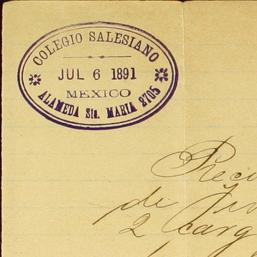 COLEGIO SALESIANO
JUL 6 1891
MEXICO
ALAMEDA Sta. MARIA 2705
de
2 carg